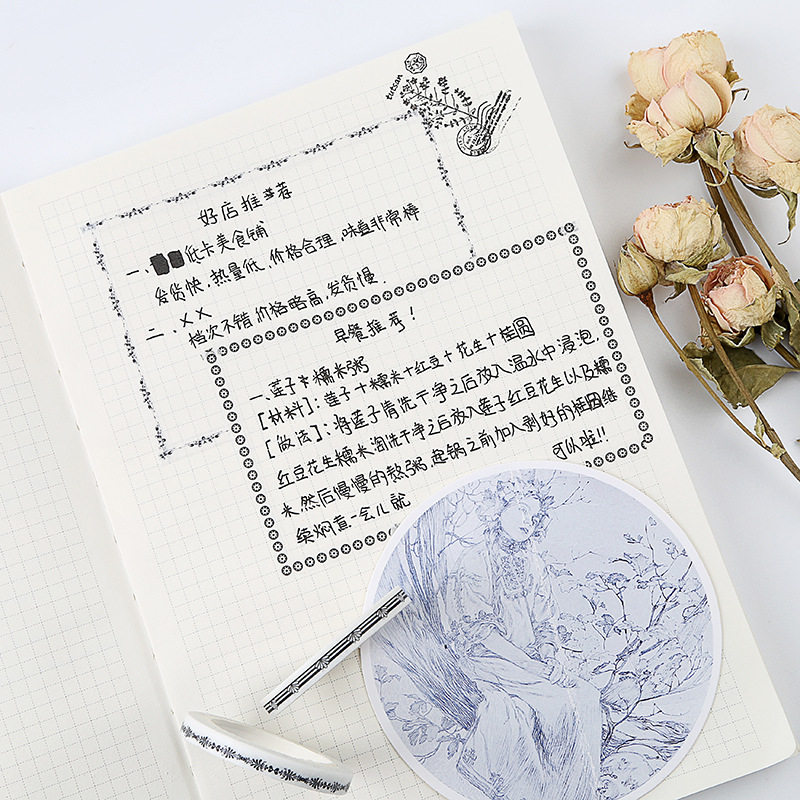 tutsan
好店推荐
一、低卡美食铺
发货快，热量低、价格合理，味道非常棒
二、XX
档次不错，价格略高，发货慢．
早餐推荐！
一、莲子糯米粥
[材料]：莲子＋糯米＋红豆＋花生＋桂圆
[做法]：将莲子清洗干净之后放入温水中浸泡，
红豆花生糯米淘洗干净之后放入莲子红豆花生以及糯
米，然后慢慢的熬粥，起锅之前加入剥好的桂圆继
续焖煮一会儿就
可以啦！！